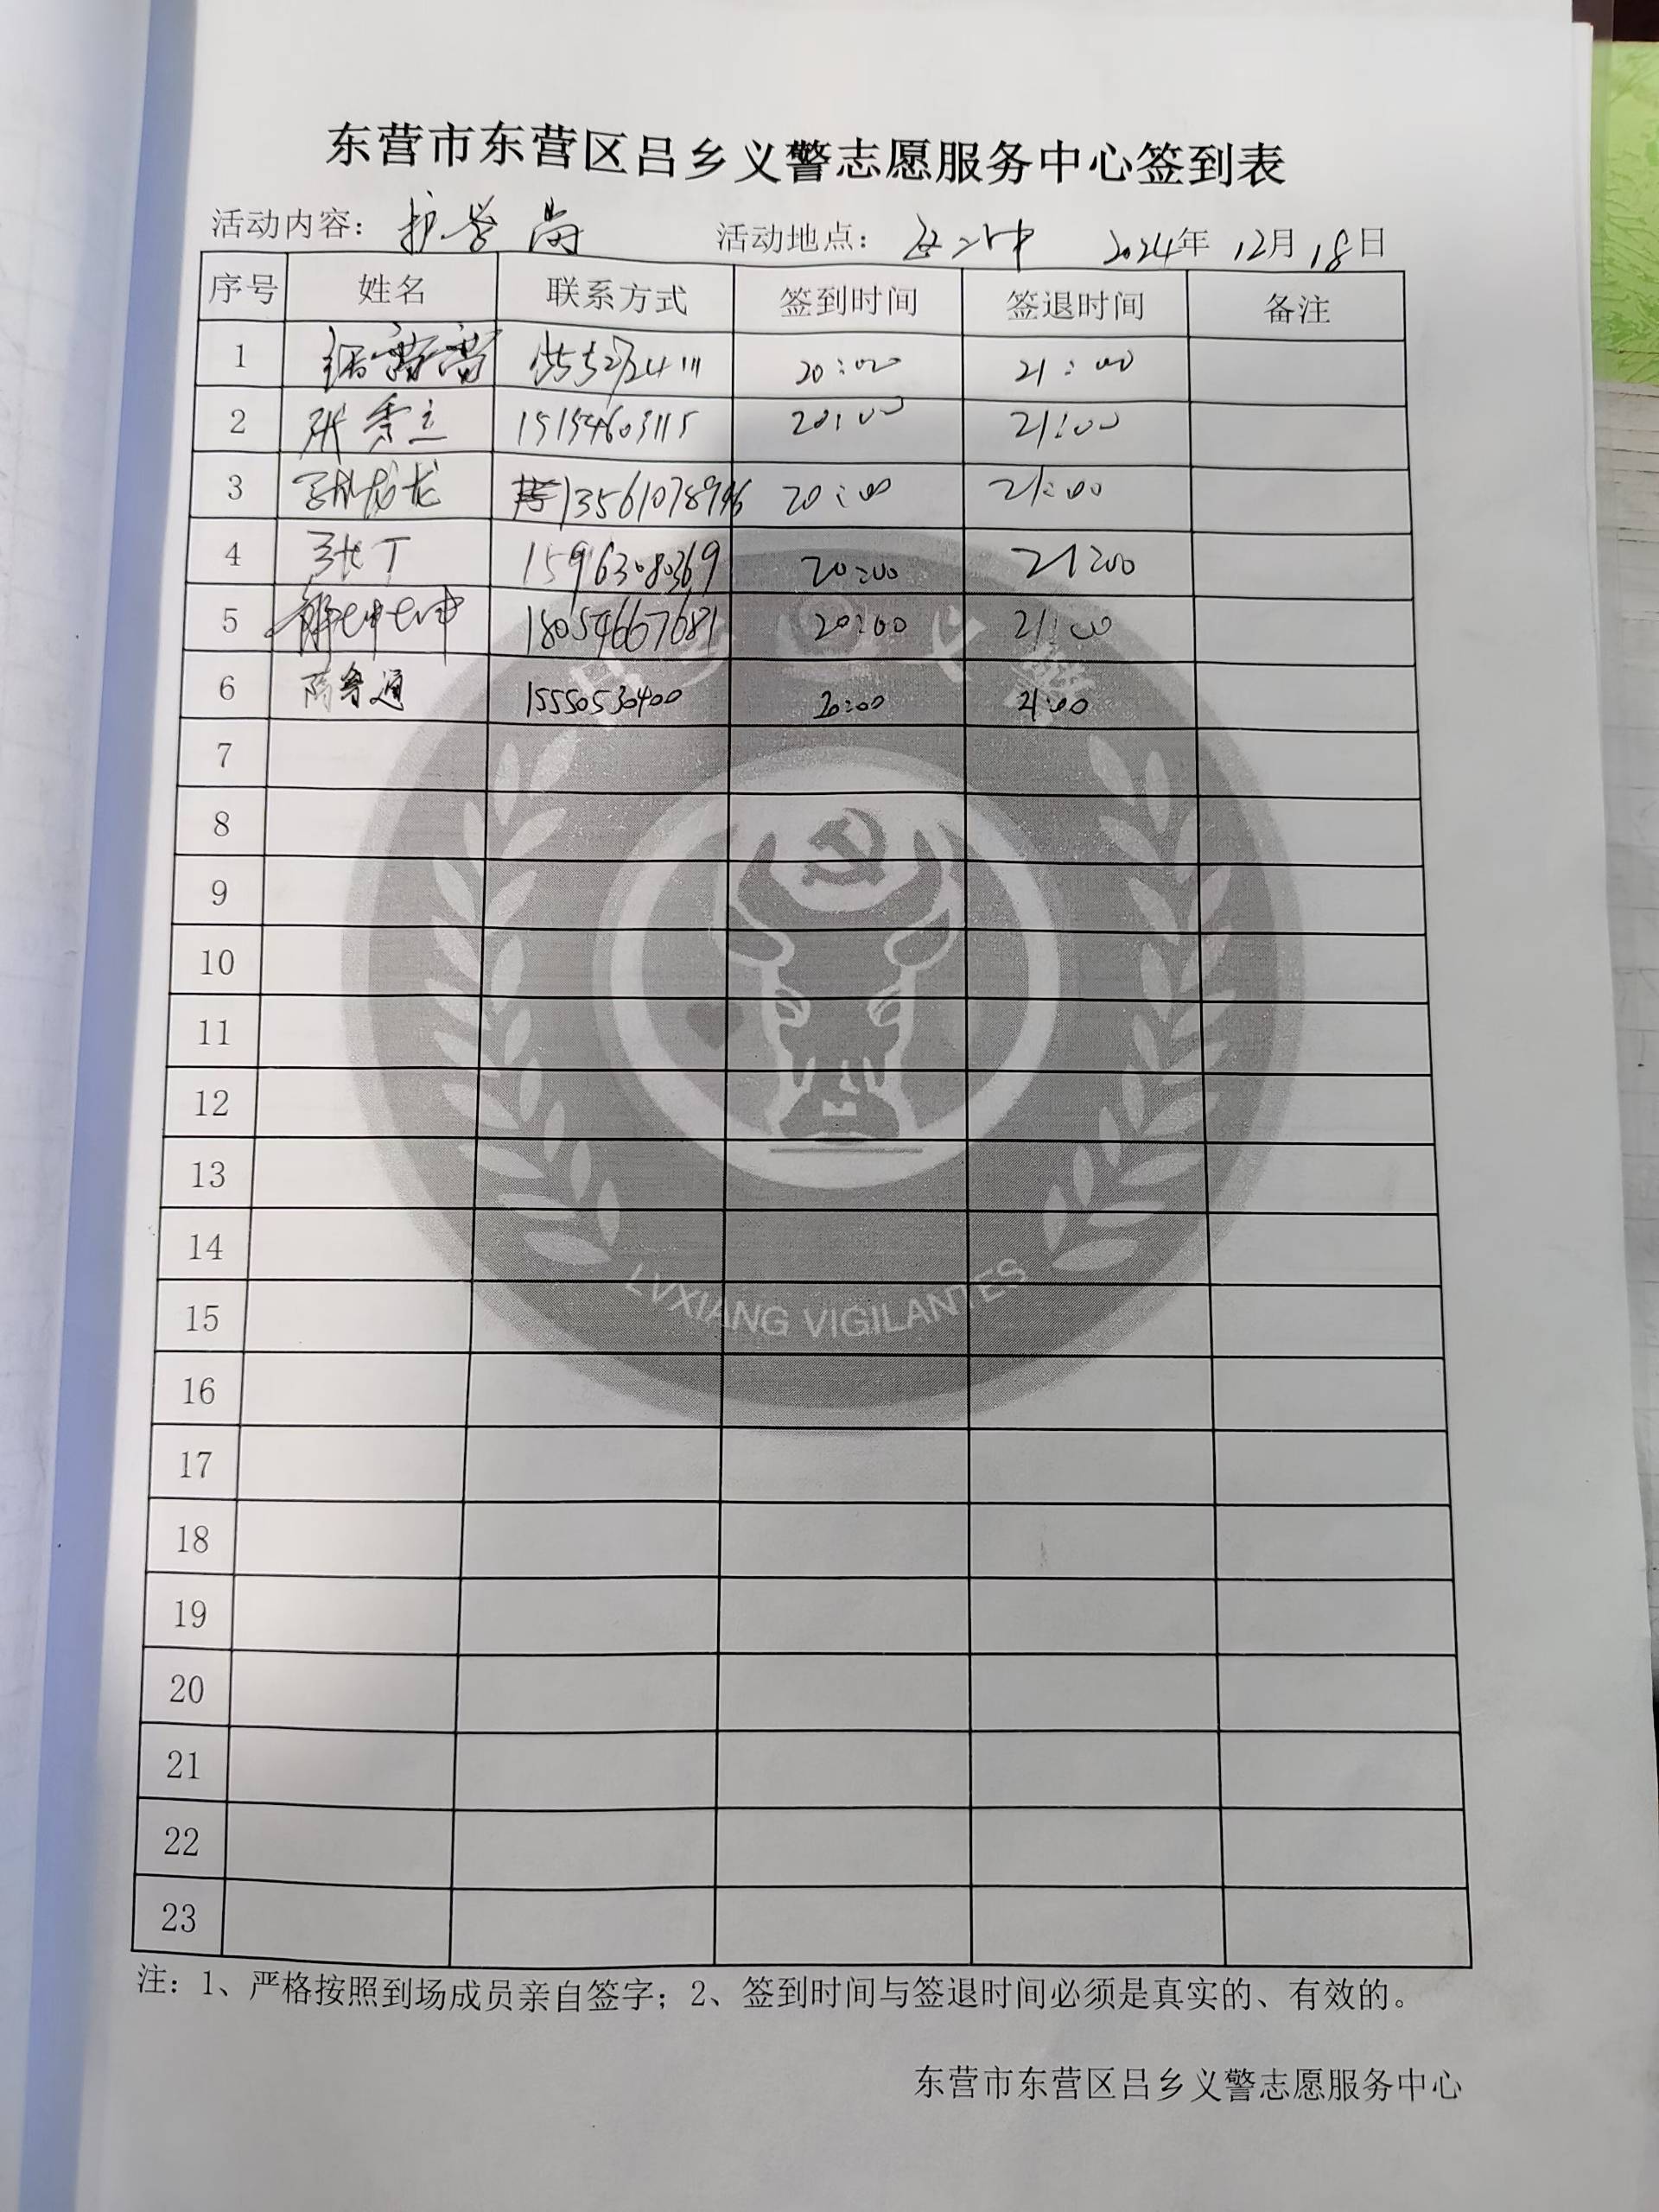 东营市东营区吕乡义警志愿服务中心签到表
活动内容：护学岗 活动地点： 2024年12月18日
序号 姓名 联系方式 签到时间 签退时间 备注
1 20:00 21:00
2 张秀立 15154603115 20:00 21:00
3 龙龙 20:00 21:00
4 张丁 15963080369 20:00 21:00
5 18054667681 20:00 21:00
6 陈鲁通 15550530400 20:00 21:00
7
8
9
10
11
12
13
14
15
16
17
18
19
20
21
22
23
吕乡义警
LVXIANG VIGILANTES
注：1、严格按照到场成员亲自签字；2、签到时间与签退时间必须是真实的、有效的。
东营市东营区吕乡义警志愿服务中心